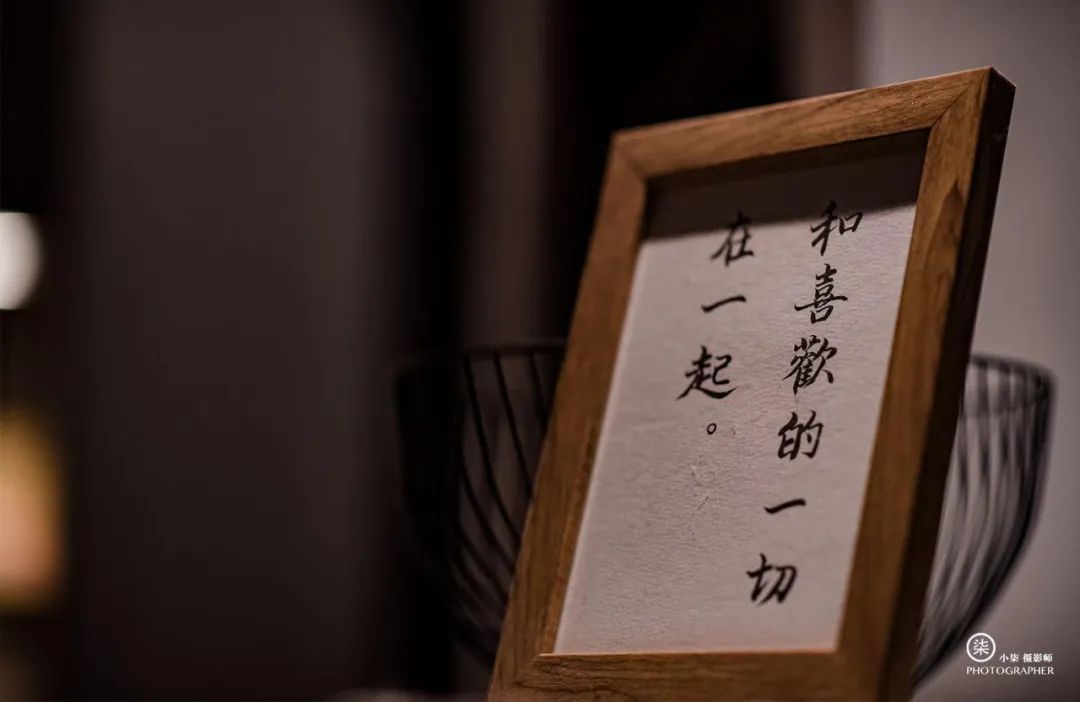 和喜歡的一切
在一起。
柒
小柒 摄影师
PHOTOGRAPHER